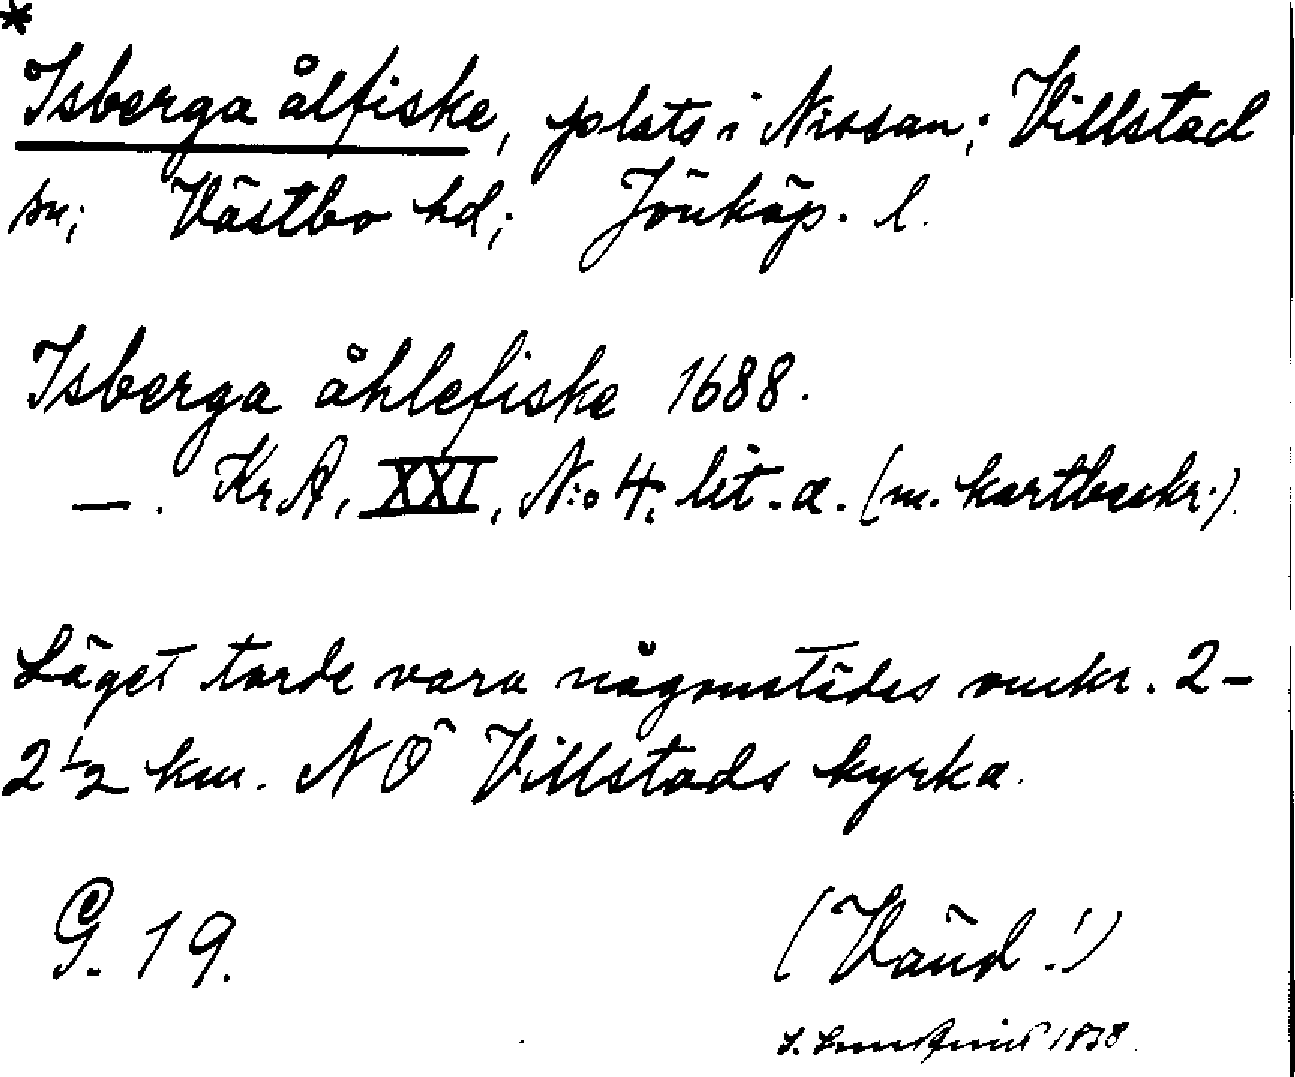 *
Isberga ålfiske, plats i Nissan; Villstad
sn; Västbo hd; Jönköp. l.
Isberga åhlefiske 1688.
—. Kr.A, XXI, N:o 4; lit. a. (m. kartbeskr.).
Läget torde vara någonstädes omkr. 2-
2 1/2 km. NÖ Villstads kyrka.
G. 19.
(Vänd!)